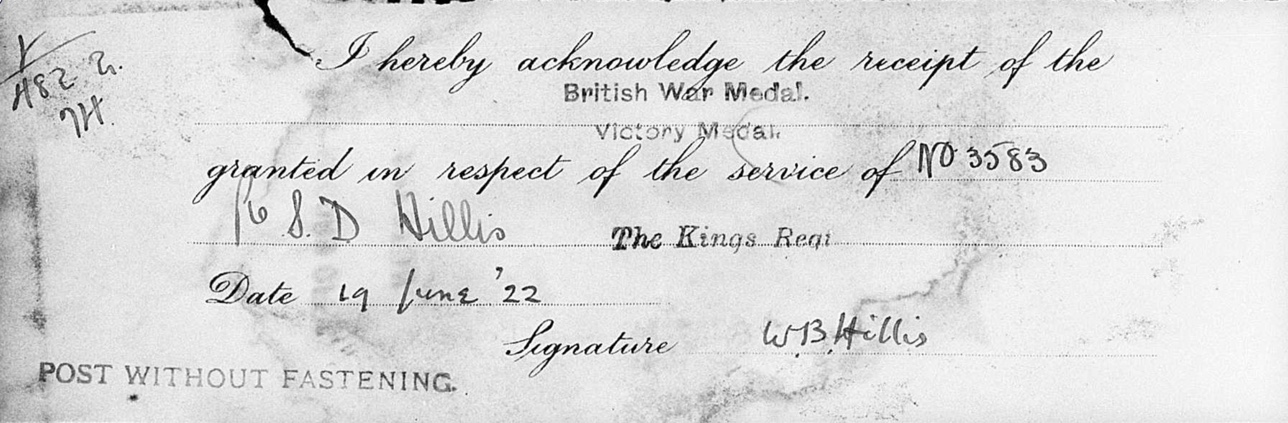 I hereby acknowledge the receipt of the
British War Medal.
Victory Medal.
granted in respect of the service of No 3583
S. D Hillis The Kings Regt
Date 19 June '22
Signature W.B. Hillis
POST WITHOUT FASTENING.